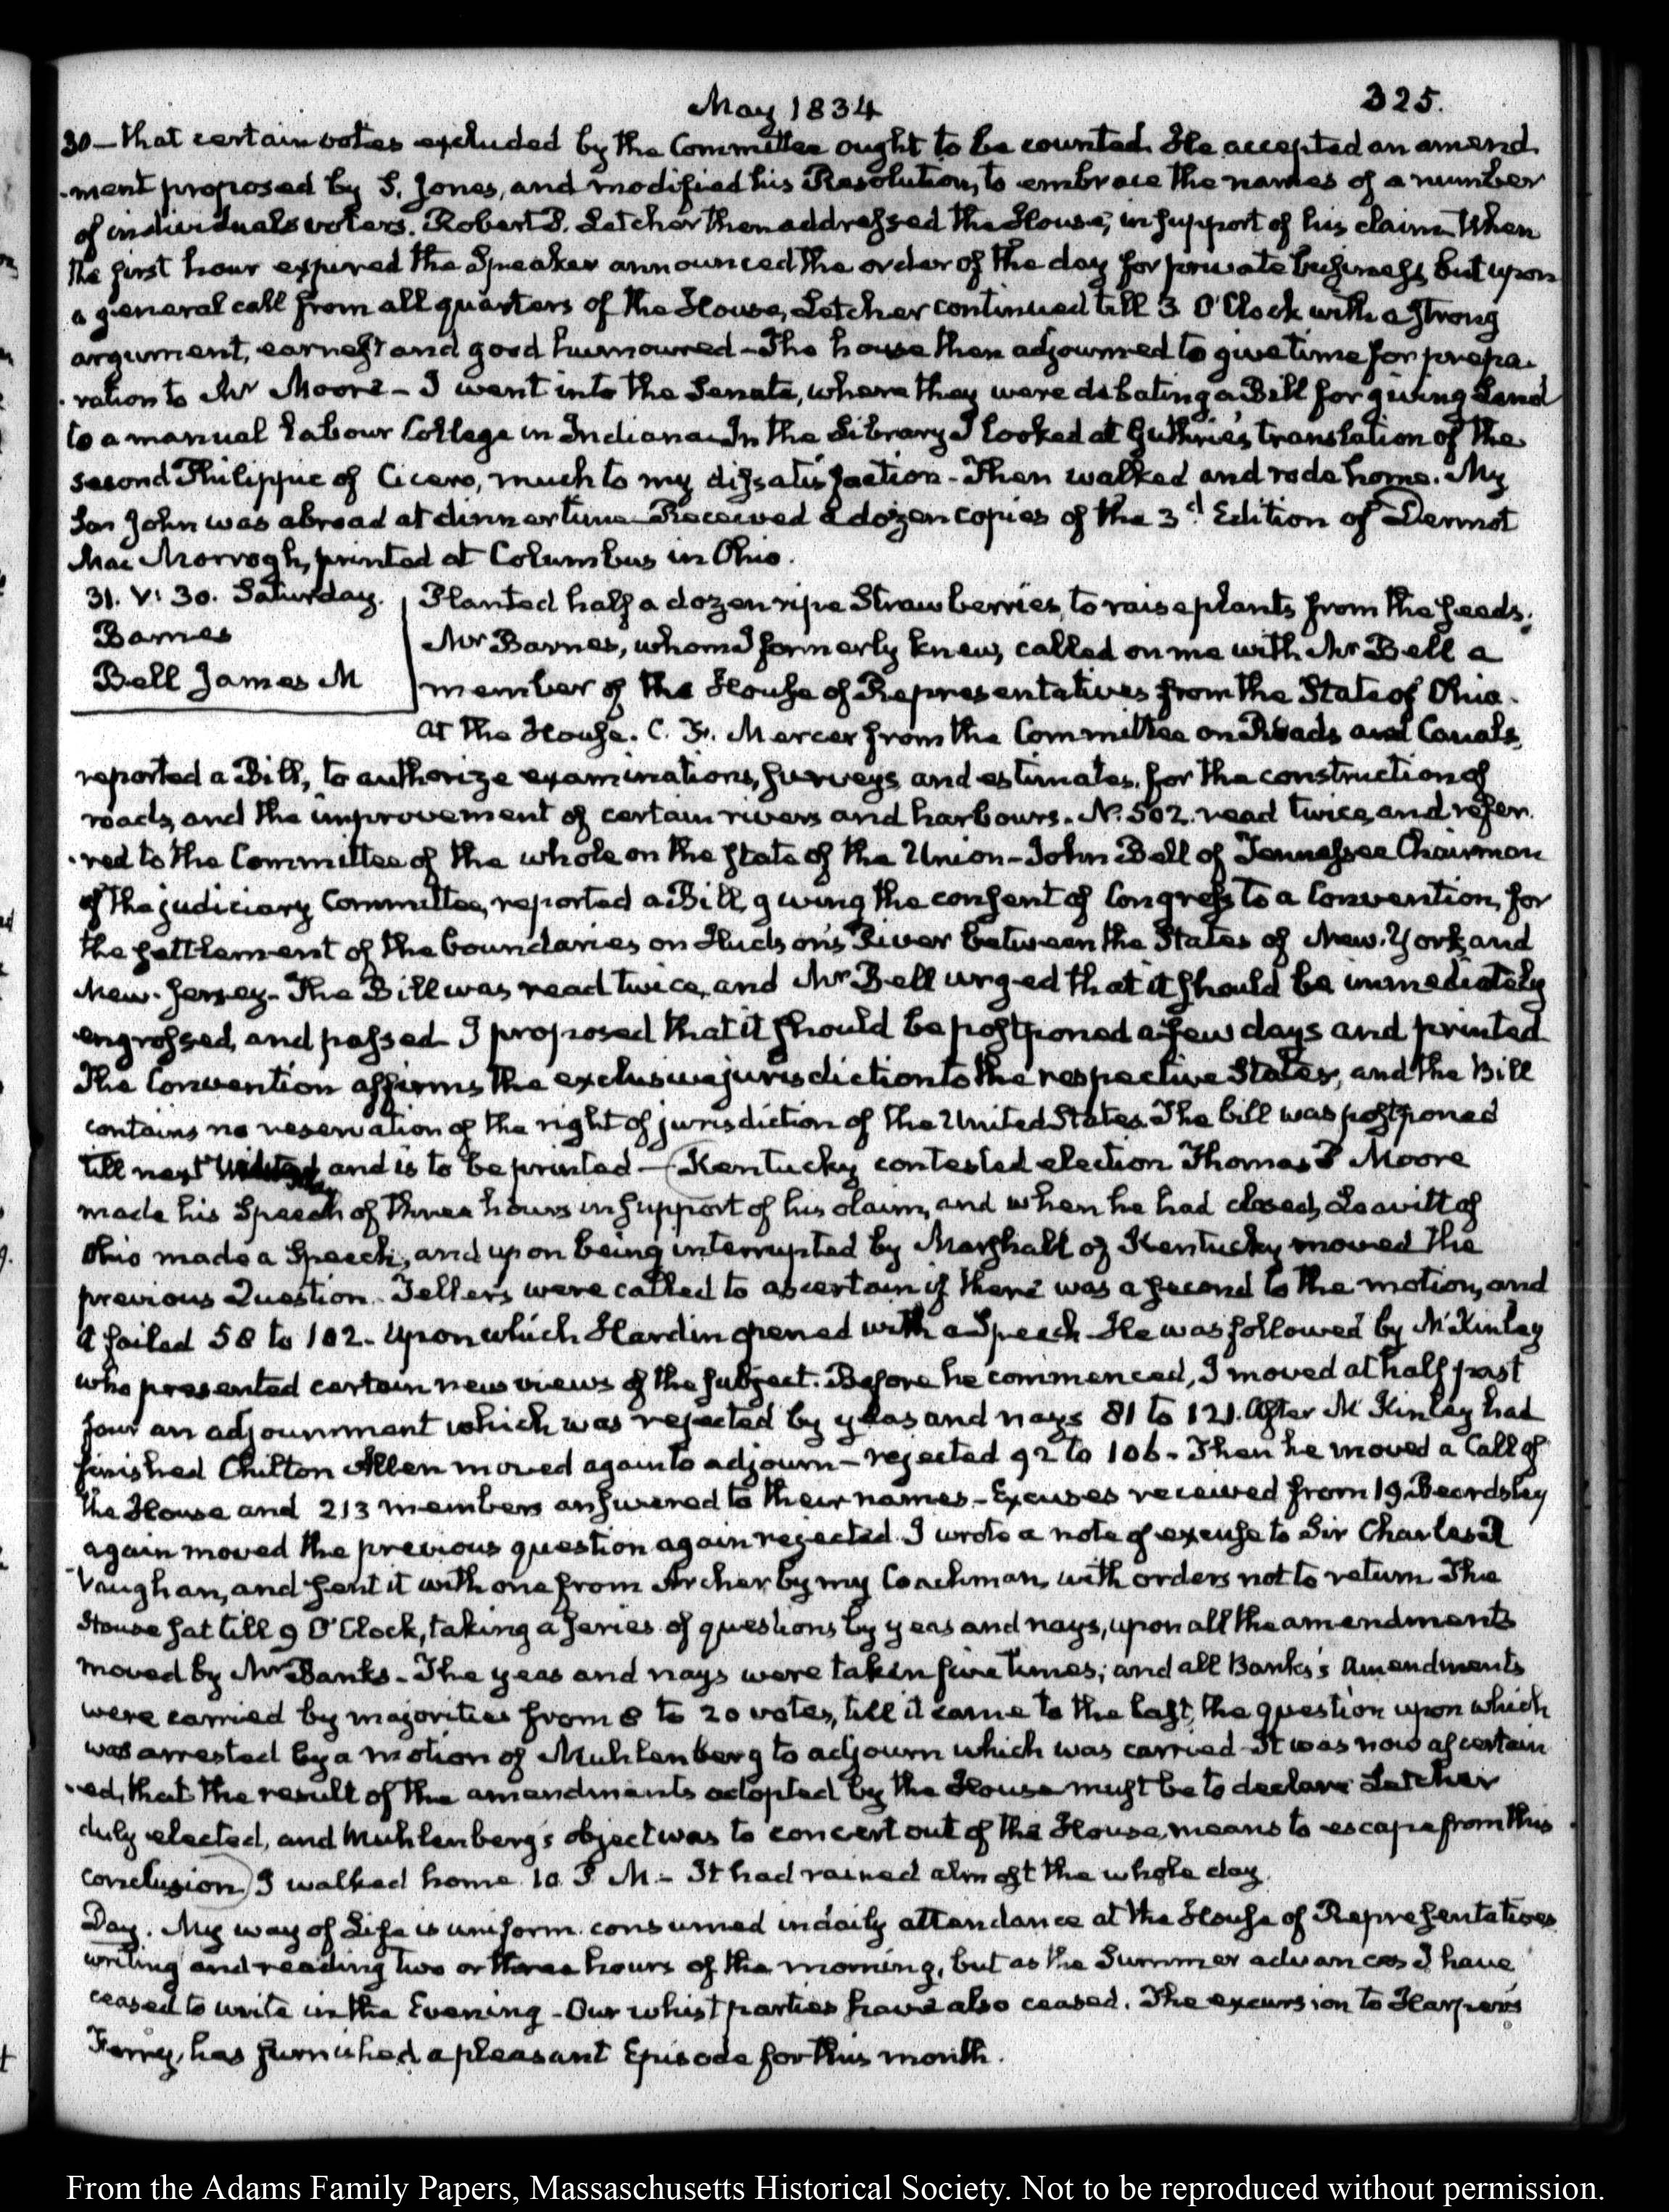 May 1834
325.
30 – that certain votes excluded by the Committee ought to be counted. He accepted an amend
-ment proposed by S. Jones, and modified his Resolution, to embrace the names of a number
of individuals voters. Robert P. Letcher then addressed the House, in support of his claim. When
the first hour expired the Speaker announced the order of the day for private business but upon
a general call from all quarters of the House, Letcher continued till 3 O'Clock with a strong
argument, earnest and good humoured – The house then adjourned to give time for prepa-
-ration to Mr Moore – I went into the Senate, where they were debating a Bill for giving Land
to a manual labour College in Indiana. In the Library I looked at Guthrie's translation of the
second Philippic of Cicero, much to my dissatisfaction – Then walked and rode home. My
Son John was abroad at dinner time – Received a dozen copies of the 3d. Edition of Dermot
Mac Morrogh, printed at Columbus in Ohio.
31. V: 30. Saturday.
Barnes
Bell James M
Planted half a dozen ripe Strawberries, to raise plants from the seeds.
Mr Barnes, whom I formerly knew, called on me with Mr Bell a
member of the House of Representatives from the State of Ohio.
At the House. C. F. Mercer from the Committee on Roads and Canals,
reported a Bill, to authorize examinations, surveys and estimates, for the construction of
roads, and the improvement of certain rivers and harbours. No. 502. read twice, and refer
-red to the Committee of the whole on the state of the Union – John Bell of Tennessee Chairman
of the judiciary Committee, reported a Bill, giving the consent of Congress to a Convention, for
the settlement of the boundaries on Hudson's River between the States of New-York, and
New-Jersey – The Bill was read twice, and Mr Bell urged that it should be immediately
engrossed, and passed – I proposed that it should be postponed a few days and printed
The Convention affirms the exclusive jurisdiction to the respective States, and the Bill
contains no reservation of the right of jurisdiction of the United States. The bill was postponed
till next and is to be printed – (Kentucky contested election Thomas P Moore
made his Speech of three hours in support of his claim, and when he had closed, Leavitt of
Ohio made a Speech, and upon being interrupted by Marshall of Kentucky moved the
previous Question. Tellers were called to ascertain if there was a second to the motion, and
it failed 58 to 102 – Upon which Hardin opened with a Speech – He was followed by McKinley
who presented certain new views of the subject. Before he commenced, I moved at half past
four an adjournment which was rejected by yeas and nays 81 to 121. After McKinley had
finished Chilton Allen moved again to adjourn – rejected 92 to 106 – Then he moved a Call of
the House and 213 members answered to their names – Excuses received from 19. Beardsley
again moved the previous question again rejected. I wrote a note of excuse to Sir Charles R
Vaughan, and sent it with one from Archer by my Coachman, with orders not to return. The
House sat till 9 O'Clock, taking a series of questions by yeas and nays, upon all the amendments
moved by Mr Banks – The yeas and nays were taken five times; and all Banks's Amendments
were carried by majorities from 8 to 20 votes, till it came to the last, the question upon which
was arrested by a motion of Muhlenberg to adjourn which was carried – It was now ascertain
-ed, that the result of the amendments adopted by the House must be to declare Letcher
duly elected, and Muhlenberg's object was to concert out of the House, means to escape from this
conclusion) I walked home 10 P. M. – It had rained almost the whole day.
Day. My way of Life is uniform. consumed in daily attendance at the House of Representatives
writing and reading two or three hours of the morning, but as the Summer advances I have
ceased to write in the Evening – Our whist parties have also ceased. The excursion to Harper's
Ferry, has furnished a pleasant Episode for this month.
From the Adams Family Papers, Massachusetts Historical Society. Not to be reproduced without permission.